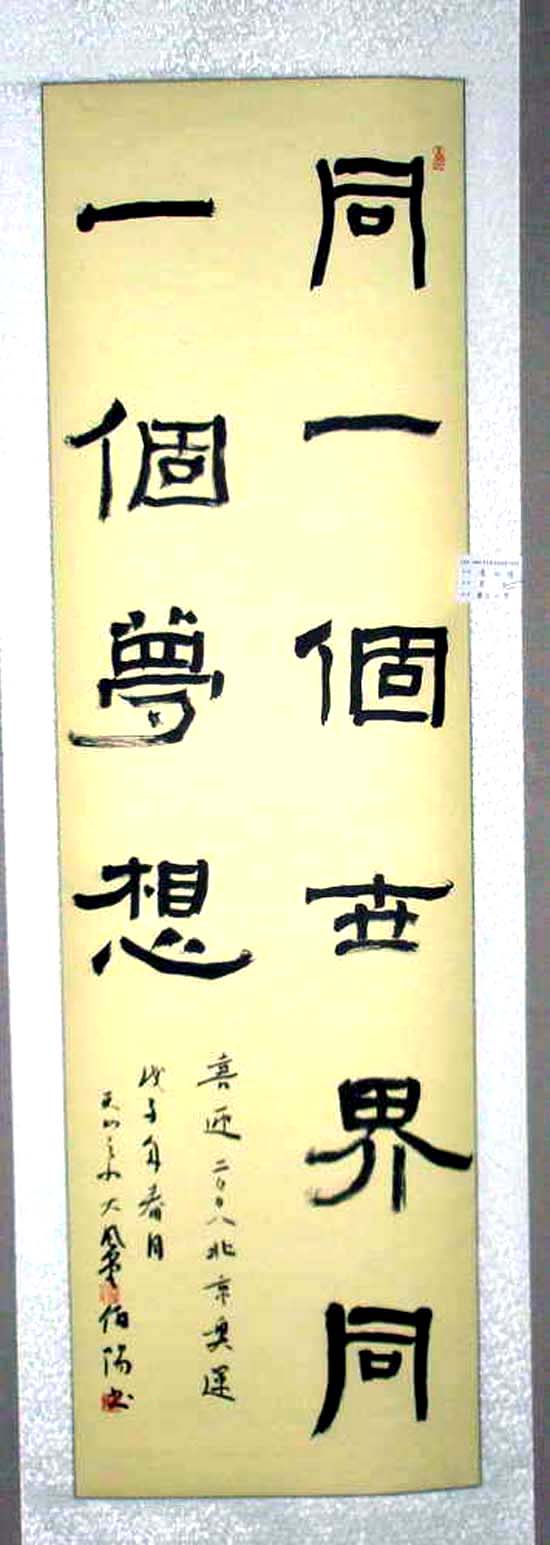 同一個世界同
一個夢想
喜迎二〇〇八北京奥運
戊子年春月
天山之水大風堂伯陽书